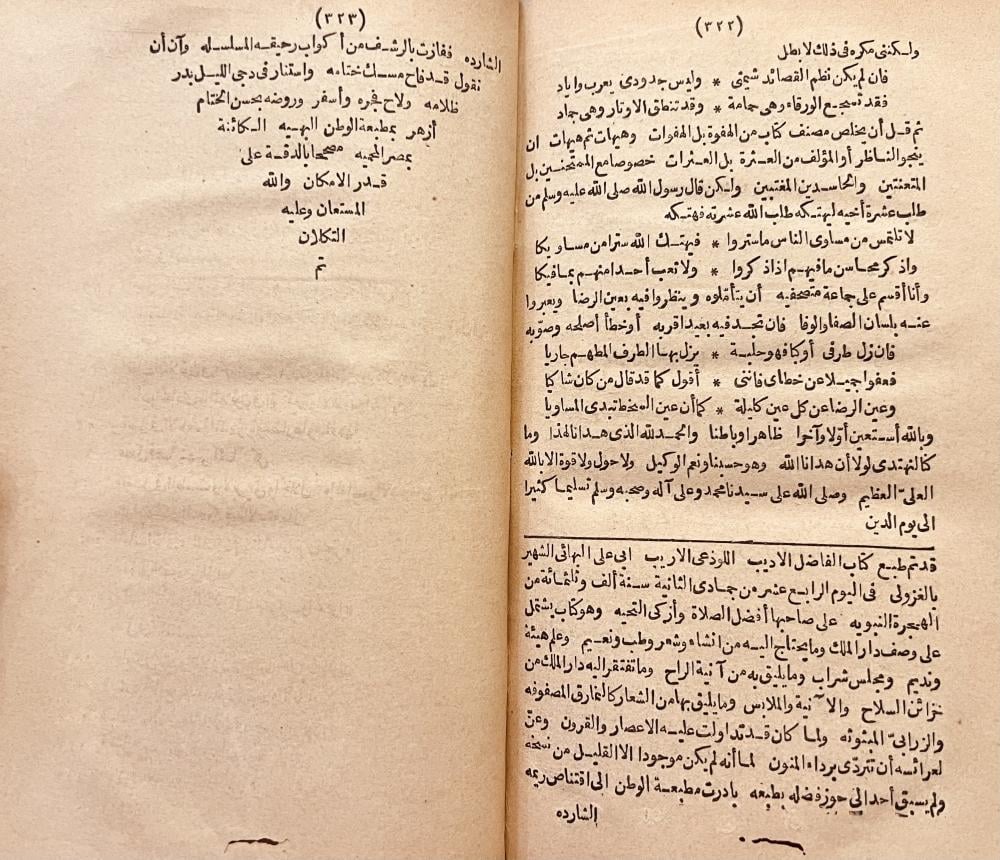 (٣٢٢)
ولكننى مكره فى ذلك لا بطل
فان لم يكن نظم القصائد شيمتى * وليس جدودى يعرب واياد
فقد تسجع الورقاء وهى حمامة * وقد تنطق الاوتار وهى جماد
ثم قل أن يخلص مصنف كتاب من الهفوة بل الهفوات وهيهات ثم هيهات ان
ينجو الناظر أو المؤلف من العثرة بل العثرات خصوصا مع الممتحنين بل
المتعنتين والحاسدين المغتبين ولكن قال رسول الله صلى الله عليه وسلم من
طلب عشرة أخيه ليهتكه طلب الله عشرته فهتكه
لا تلتمس من مساوى الناس ماستروا * فيهتك الله سترا من مساويكا
واذكر محاسن مافيهم اذا ذكروا * ولا تعب أحدا منهم بما فيكا
وأنا أقسم على جماعة متصفحيه أن يتأملوه وينظروا فيه بعين الرضا ويعبروا
عنه بلسان الصفا والوفا فان تجد فيه بعيدا قربه أو خطأ أصلحه وصوّبه
فان زل طرفى أو كبا فهو حلبة * يزل بها الطرف المطهم جاريا
فعفوا جميلا عن خطاى فاننى * أقول كما قد قال من كان شاكيا
وعين الرضا عن كل عين كليلة * كما أن عين السخط تبدى المساويا
وبالله أستعين أوّلا وآخرا ظاهرا وباطنا والحمد لله الذى هدانا لهذا وما
كنا لنهتدى لولا أن هدانا الله وهو حسبنا ونعم الوكيل ولا حول ولا قوة الا بالله
العلىّ العظيم وصلى الله على سيدنا محمد وعلى آله وصحبه وسلم تسليما كثيرا
الى يوم الدين
قد تم طبع كتاب الفاضل الاديب اللوذعى الاريب ابى على البهائى الشهير
بالغزولى فى اليوم الرابع عشر من جمادى الثانية سنة ألف وثلثمائة من
الهجرة النبويه على صاحبها أفضل الصلاة وأزكى التحيه وهو كتاب يشتمل
على وصف دار الملك وما يحتاج اليه من انشاء وشعر وطب ونعيم وعلم هيئة
ونديم ومجلس شراب وما يليق به من آنية الراح وما تفتقر اليه دار الملك من
خزائن السلاح والآنية والملابس وما يليق بها من الشعار كالنمارق المصفوفه
والزرابىّ المبثوثه ولما كان قد تداولت عليه الاعصار والقرون وعنّ
لعرائسه أن تتردّى برداء المنون لما أنه لم يكن موجودا الا القليل من نسخه
ولم يسبق أحد الى حوز فضله بطبعه بادرت مطبعة الوطن الى اقتناص ريمه
الشارده
(٣٢٣)
الشارده ففازت بالرشف من أكواب رحيقه المسلسله وآن أن
نقول قد فاح مسك ختامه واستنار فى دجى الليل بدر
ظلامه ولاح فجره وأسفر وروضه بحسن الختام
أزهر بمطبعة الوطن البهيه الكائنة
بمصر المحميه مصححا بالدقة على
قدر الامكان والله
المستعان وعليه
التكلان
تم